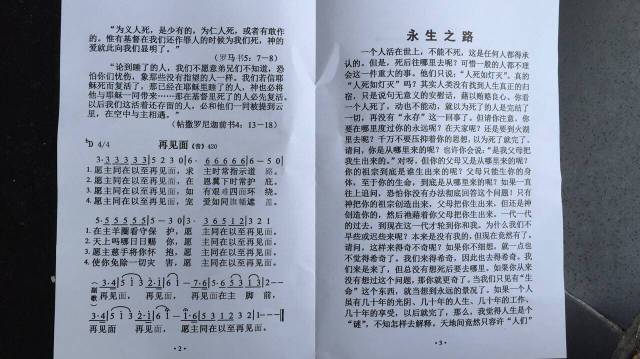 “为义人死，是少有的，为仁人死，或者有敢作
的。惟有基督在我们还作罪人的时候为我们死，神的
爱就此向我们显明了。”
（罗马书5：7－8）
“论到睡了的人，我们不愿意弟兄们不知道，恐
怕你们忧伤，象那些没有指望的人一样。我们若信耶
稣死而复活了，那已经在耶稣里睡了的人，神也必将
他与耶稣一同带来……那在基督里死了的人必先复活。
以后我们这活着还存留的人，必和他们一同被提到云
里，在空中与主相遇。”
（帖撒罗尼迦前书4：13－18）
D 4/4 再见面 (普) 420
3·3 3 3 3 3 5 2 3 0 6·6 6 6 6 6 5 3 0
1. 愿主同在以至再见面，求 主时常指示道 路。
2. 愿主同在以至再见面，在 恩翼下时常护 庇。
3. 愿主同在以至再见面，如 有艰难四面环 绕。
4. 愿主同在以至再见面，宠 爱如同旗帜遮 盖。
1. 在主羊圈看守保 护，愿 主同在以至再见面。
2. 天上吗哪日日赐 你，愿 主同在以至再见面。
3. 愿主慈手将你怀 抱，愿 主同在以至再见面。
4. 使你免除一切灾 害，愿 主同在以至再见面。
副歌
再见面， 再见面， 再见面在主 脚 前，
再见面 再见面， 愿主同在以至再见面。
·2·
永生之路
一个人活在世上，不能不死，这是任何人都得承
认的。但是，死后往哪里去呢？可惜一般的人都不理
会这一件重大的事。他们只说：“人死如灯灭”。真的
“人死如灯灭”吗？其实人类没有找到人生真正的归
宿，只是说句无意义的安慰话，藉以贿赂良心。你看
一个人死了，动也不能动，就以为死了的人是完结了
一切，再没有“永存”这一回事了。但请你注意，你
要在哪里度过你的永远呢？在天家呢？还是要到火湖
里去呢？千万不要压抑着你的思想，以为死了就完了。
请问，你是从哪里来的呢？也许你会说：“是我父母把
我生出来的。”对呀，但你的父母又是从哪里来的呢？
你的祖宗到底是谁生出来的呢？父母只能生你的身
体，至于你的生命，到底是从哪里来的呢？如果一直
往上追问，恐怕你没有办法彻底回答这个问题！只有
神把你的祖宗创造出来，父母把你生出来，但还是神
创造你的，然后祂藉着你父母把你生出来。一代一代
的过去，到现在这一代才轮到你和我。为什么我们不
早些或迟些来呢？本来是没有我的，但现在竟然有了。
请问，这样来得奇不奇呢？如果你不细想，就一点也
不觉得奇奇了。我们来得奇，因此也去得奇。我
们来是来了，但总没有想死后要去哪里。如果你从来
没有想过这个问题，那你就可奇了。当我们只见有“生
命”这个东西，就当想到永远的情况了。如果一个人
虽有几十年的光阴、几十年的人生、几十年的工作、
几十年的享受，以后就完了，那么，我觉得人生是个
“谜”，不知怎样去解释。天地间竟然只容许“人们”
·3·